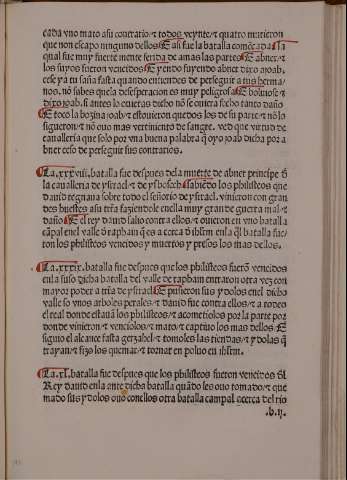 cada vno mato asu contario ⁊ todos veynte ⁊ quatro murieron
que non escapo ninguno dellos E asi fue la batalla comēçada La
qual fue muy fuerte mente ferida de amas las partes E abner ⁊
los suyos fueron vencidos E yendo fuyendo abner dixo a joab.
cese ya tu saña fasta quando entiendes de perseguir a tus herma/
nos. nō sabes quela desesperacion es muy peligrosa E boluiose ⁊
dixo joab. si antes lo ouieras dicho nō se ouiera fecho tanto daño
E toco la bozina joab ⁊ estouieron quedos los de su parte ⁊ nō lo
siguieron ⁊ nō ouo mas vertimiento de sangre. ved que virtud de
cauallería que solo por vna buena palabra q̄ oyo joab dicha por a
bner ceso de perseguir sus contrarios.
La .xxxviii. batalla fue despues dela muerte de abner principe d̄
la caualleria de ysrael ⁊ de ysboseth sabiēdo los philisteos que
dauid regnaua sobre todo el señorio de ysrael. vinieron con gran
des huestes asu trr̄a faziendole enella muy gran de guerra mal ⁊
daño E el rey dauid salio contra ellos ⁊ ouieron en vno batalla
cāpal enel valle d̄ raphain q̄ es a cerca d̄ ihrłm enla q̄l batalla fue/
ron los philisteos vencidos y muertos y presos los mas dellos.
La .xxxix. batalla fue despues que los philisteos fuerō vencidos
enla suso dicha batalla del valle de raphain entraron otra vez con
mayor poder a trr̄a de ysrael E pusieron sus ydolos enel dicho
valle so vnos arboles perales ⁊ dauid fue contra ellos ⁊ a rodeo
el real donde estauā los philisteos ⁊ acometiolos por la parte por
donde vinieron ⁊ venciolos ⁊ mato ⁊ captiuo los mas dellos E
siguio el alcance fasta gerzabel ⁊ tomoles las tiendas ⁊ y dolas q̄
trayan ⁊ fizo los quemar ⁊ tornar en poluo en ihrłm.
La .xl. batalla fue despues que los philisteos fueron vencidos d̄l
Rey dauid enla ante dicha batalla quādo les ouo tomado ⁊ que
mado sus ydolos ouo conellos otra batalla campal acerca del rio
.b.ij.